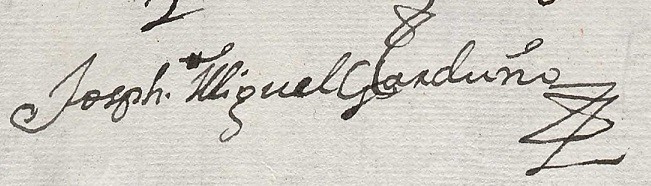 Joseph. Miguel Garduño